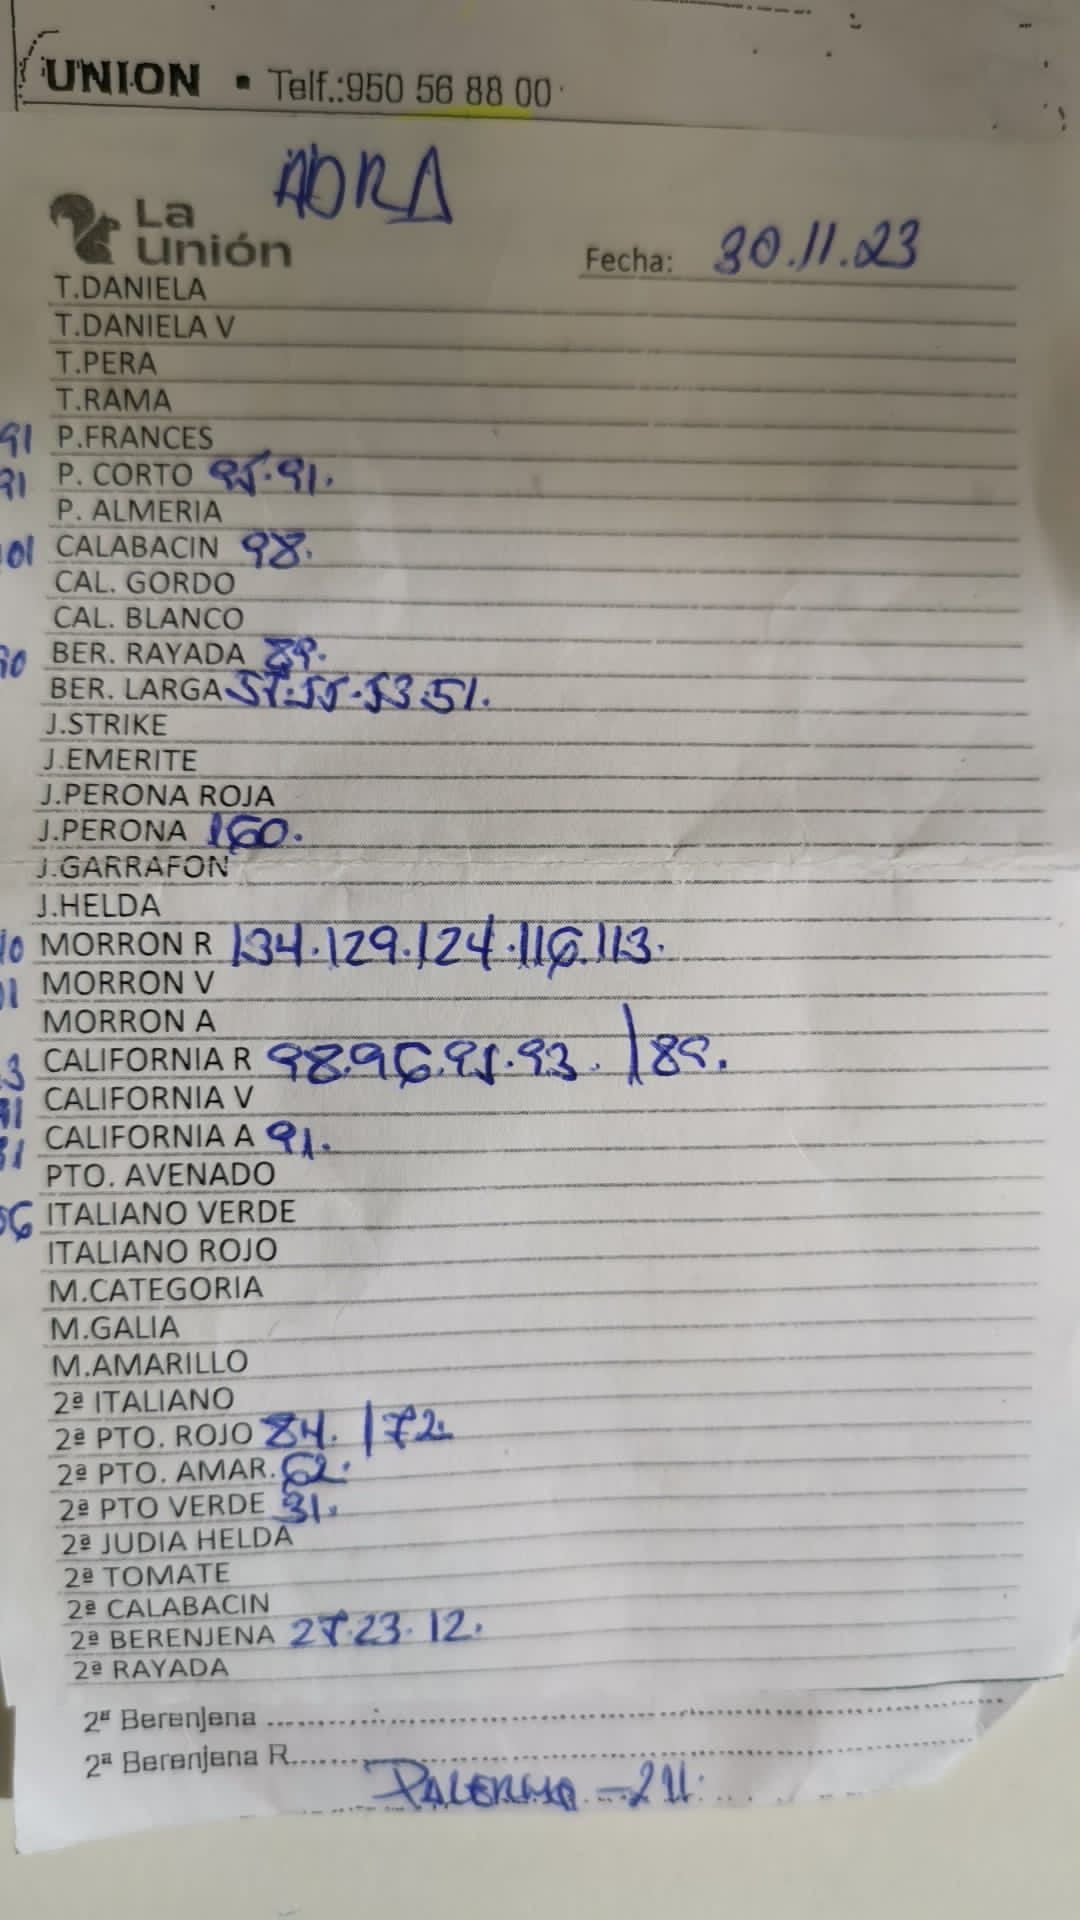 UNION • Telf.:950 56 88 00
ADRA
La Unión
Fecha: 30.11.23
T.DANIELA
T.DANIELA V
T.PERA
T.RAMA
91 P.FRANCES
91 P. CORTO 95.91.
P. ALMERIA
01 CALABACIN 98.
CAL. GORDO
CAL. BLANCO
90 BER. RAYADA 89.
BER. LARGA 57.55.53.51.
J.STRIKE
J.EMERITE
J.PERONA ROJA
J.PERONA 160.
J.GARRAFON
J.HELDA
10 MORRON R 134.129.124.116.113.
01 MORRON V
MORRON A
3 CALIFORNIA R 98.96.95.93. /89.
91 CALIFORNIA V
CALIFORNIA A 91.
PTO. AVENADO
ITALIANO VERDE
ITALIANO ROJO
M.CATEGORIA
M.GALIA
M.AMARILLO
2ª ITALIANO
2ª PTO. ROJO 84. /72.
2ª PTO. AMAR. 62.
2ª PTO VERDE 31.
2ª JUDIA HELDA
2ª TOMATE
2ª CALABACIN
2ª BERENJENA 27.23.12.
2ª RAYADA
2ª Berenjena
2ª Berenjena R.
PALERMO - 211.